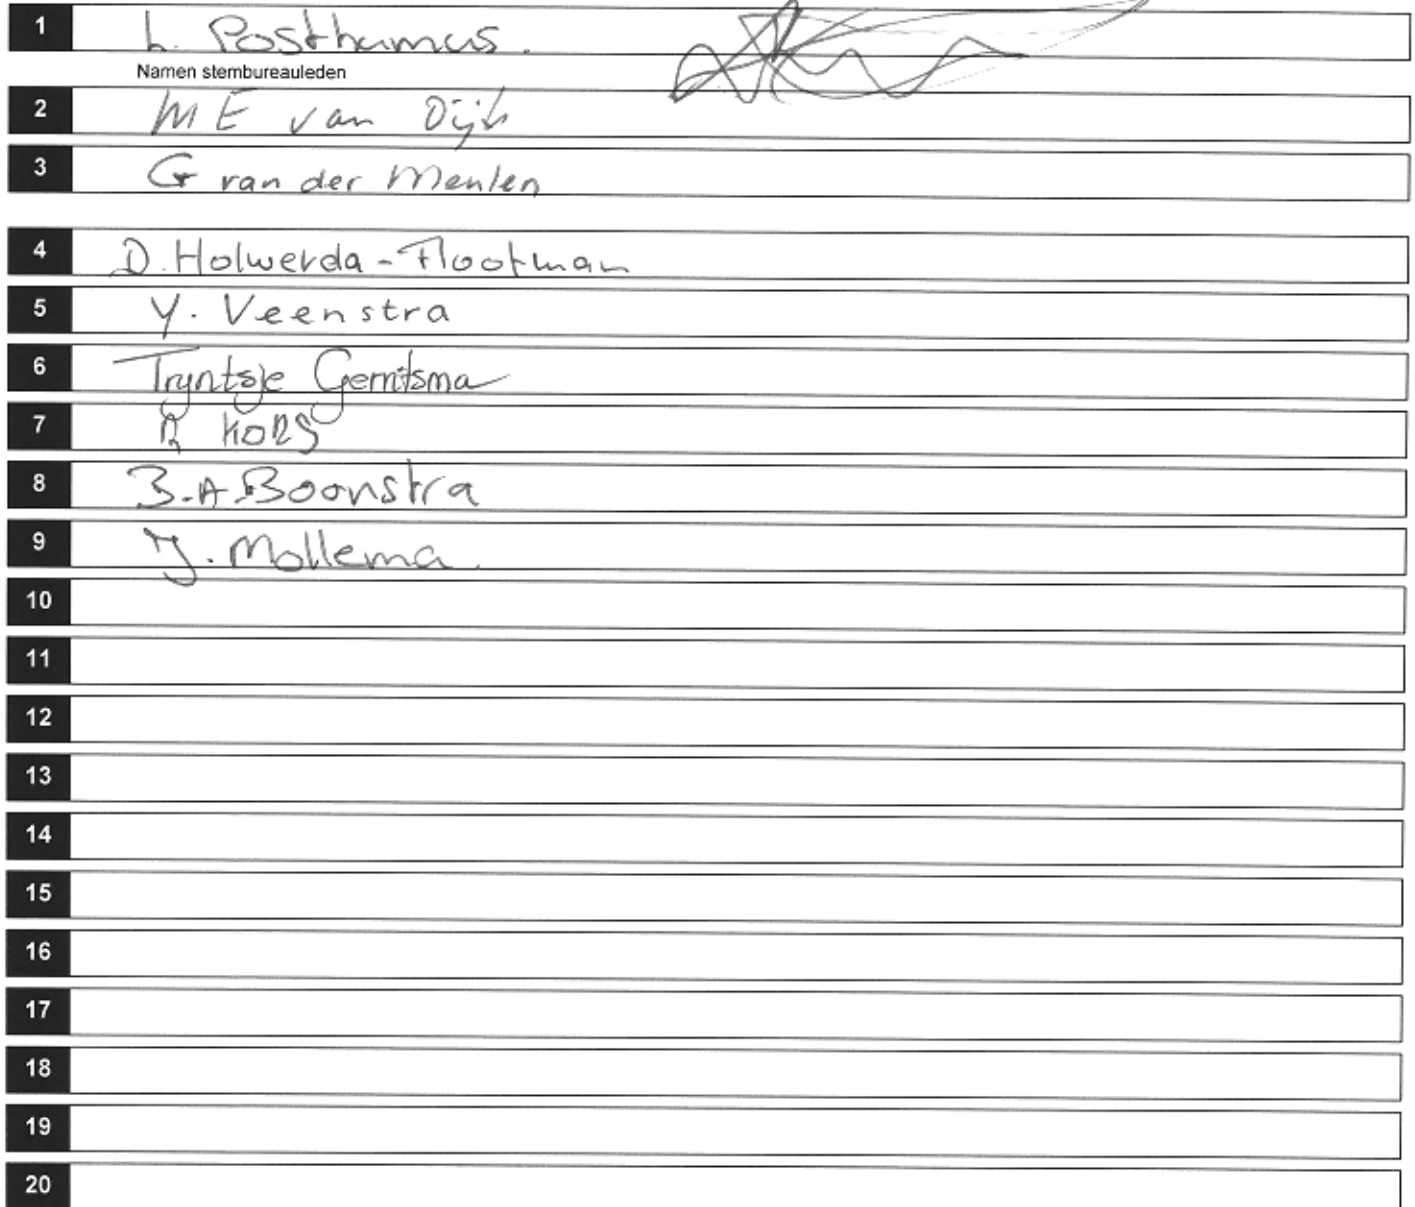 1 L. Posthumus.
Namen stembureauleden
2 M E van Dijk
3 G van der Meulen
4 D. Holwerda-Flootman
5 Y. Veenstra
6 Tryntsje Gerritsma
7 R KORS
8 B.A. Boonstra
9 J. Mollema.
10
11
12
13
14
15
16
17
18
19
20